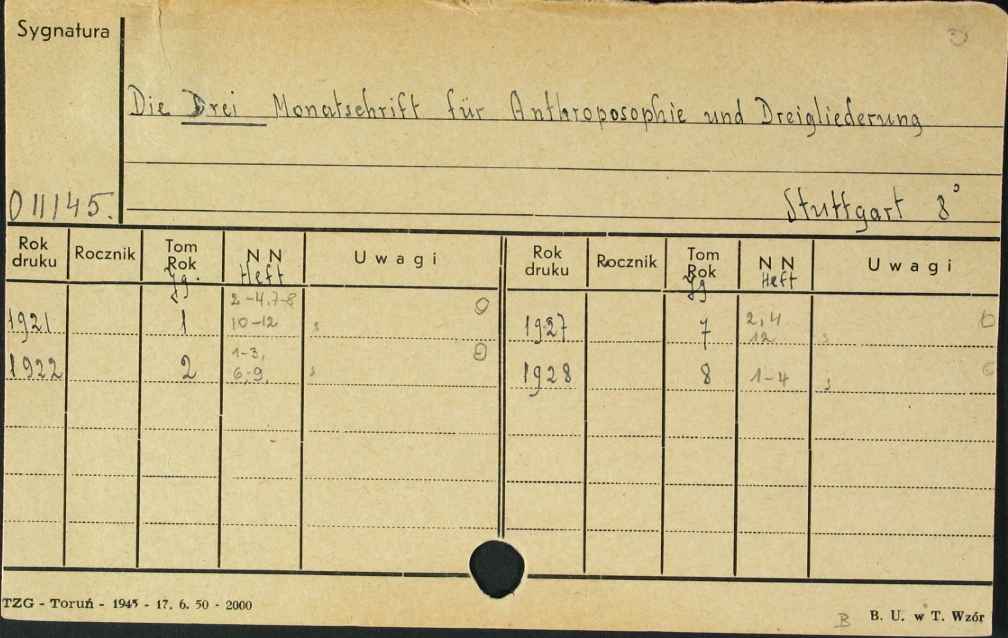 Sygnatura
Die Drei Monatschrift für Anthroposophie und Dreigliederung
011145.
Stuttgart 8°
Rok druku Rocznik Tom Rok Jg. N N Heft Uwagi Rok druku Rocznik Tom Rok Jg N N Heft Uwagi
1921 1 2-4, 7-8 10-12 1927 7 2, 4 12
1922 2 1-3, 6-9, 1928 8 1-4
TZG - Toruń - 1945 - 17. 6. 50 - 2000
B B. U. w T. Wzór